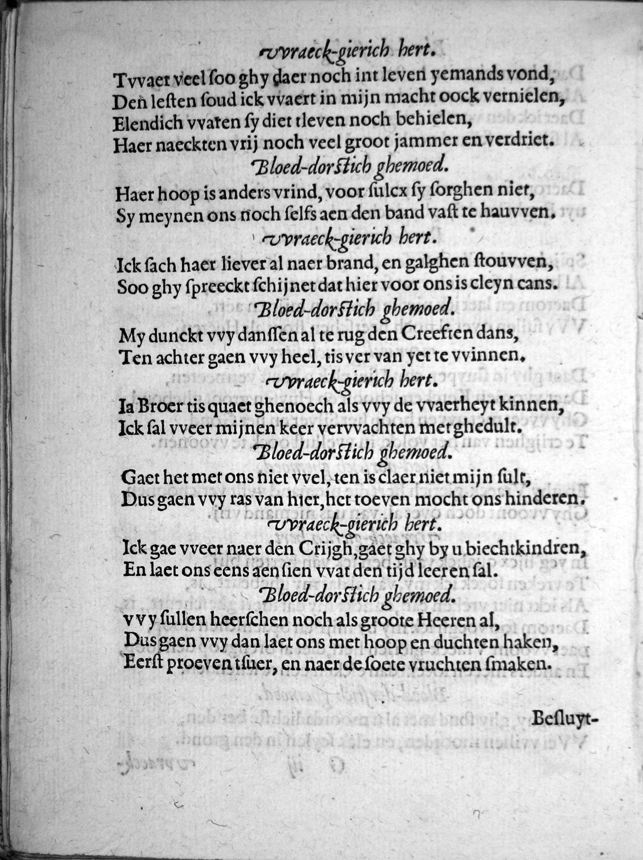 vvraeck-gierich hert.
Tvvaer veel soo ghy daer noch int leven yemands vond,
Den lesten soud ick vvaert in mijn macht oock vernielen,
Elendich vvaren sy diet tleven noch behielen,
Haer naeckten vrij noch veel groot jammer en verdriet.
Bloed-dorstich ghemoed.
Haer hoop is anders vrind, voor sulcx sy sorghen niet,
Sy meynen ons noch selfs aen den band vast te hauvven.
vvraeck-gierich hert.
Ick sach haer liever al naer brand, en galghen stouvven,
Soo ghy spreeckt schijnet dat hier voor ons is cleyn cans.
Bloed-dorstich ghemoed.
My dunckt vvy danssen al te rug den Creeften dans,
Ten achter gaen vvy heel, tis ver van yet te vvinnen.
vvraeck-gierich hert.
Ia Broer tis quaet ghenoech als vvy de vvaerheyt kinnen,
Ick sal vveer mijnen keer vervvachten met ghedult.
Bloed-dorstich ghemoed.
Gaet het met ons niet vvel, ten is claer niet mijn sult,
Dus gaen vvy ras van hier, het toeven mocht ons hinderen.
vvraeck-gierich hert.
Ick gae vveer naer den Crijgh, gaet ghy by u biechtkindren,
En laet ons eens aensien vvat den tijd leeren sal.
Bloed-dorstich ghemoed.
vvy sullen heerschen noch als groote Heeren al,
Dus gaen vvy dan laet ons met hoop en duchten haken,
Eerst proeven tsuer, en naer de soete vruchten smaken.
Besluyt-